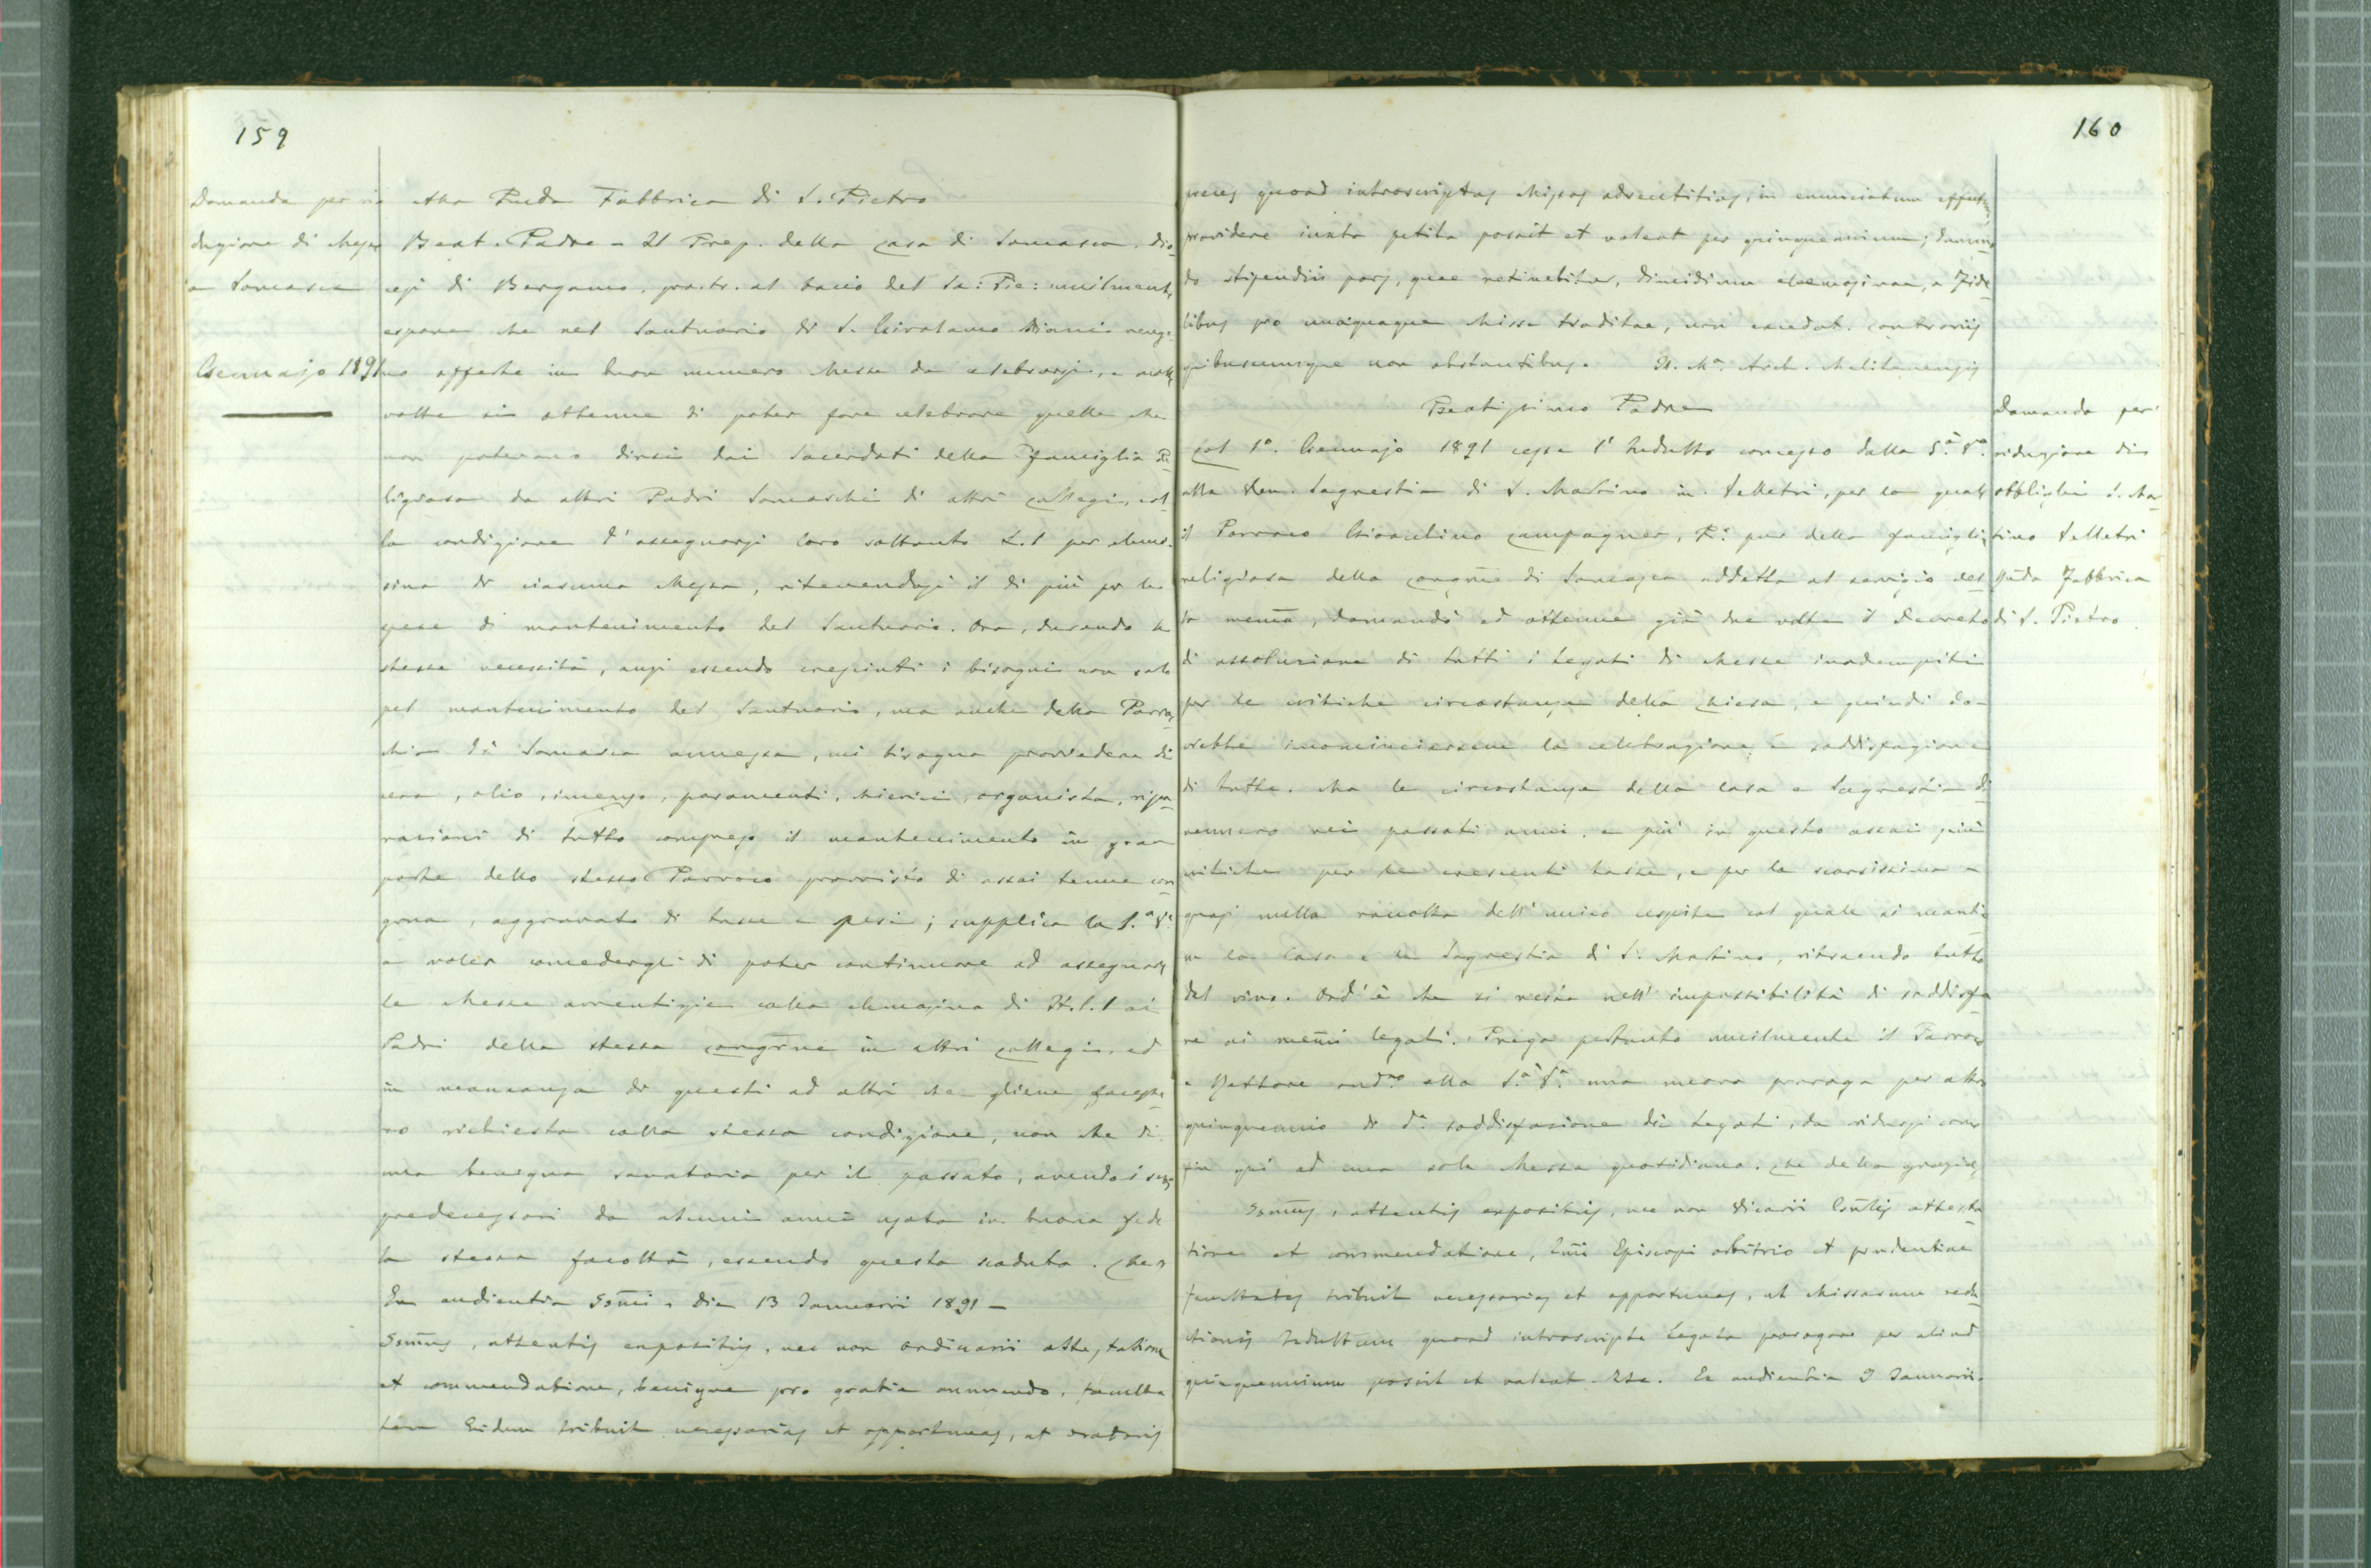 159
Domanda per ri
duzione di Messe
a Somasca
Gennajo 1891
Alla Rvda Fabbrica di S. Pietro
Beat. Padre - Il Prep. della casa di Somasca, dio
cesi di Bergamo, pro.tr. al bacio del Sa: Pie: umilmente
espone che nel Santuario di S. Girolamo Miani vengo
no offerte in buon numero Messe da celebrarsi, e
volte si ottenne di poter fare celebrare quelle che
non potevano dirsi dai Sacerdoti della famiglia Re
ligiosa da altri Padri Somaschi di altri collegi, col
la condizione d'assegnarsi loro soltanto L.1 per elemo
sina di ciascuna Messa, ritenendosi il di più per le
spese di mantenimento del Santuario. Ora, durando le
stesse necessità, anzi essendo cresciuti i bisogni non solo
pel mantenimento del Santuario, ma anche della Parroc
chia di Somasca annessa, mi bisogna provvedere di
cera, olio, incenso, paramenti, chierici, organista, ripa
razioni di tutto compreso il mantenimento in gran
parte dello stesso Parroco provvisto di assai tenue con
grua, aggravato di tasse e pesi; supplica la S.a V.a
a voler concedergli di poter continuare ad assegnare
le Messe avventizie colla elemosina di It.l.1 ai
Padri della stessa congrne in altri collegi, ed
in mancanza di questi ad altri che gliene facesse
ro richiesta colla stessa condizione, non che di
una benigna sanatoria per il passato, avendo i suoi
predecessori da alcuni anni usata in buona fede
la stessa facoltà, essendo questa scaduta. Che
Ex audientia Ssmi, die 13 Januarii 1891 -
Ssmus, attentis expositis, nec non ordinarii attestatione
et commendatione, benigne pro gratia annuendo, faculta
tem Eidem tribuit necessarias et opportunas, ut oratoris
160
preces quoad introscriptas Missas adventitias, in enunciatum effectum
providere iuxta petita possit et valeat per quinquennium; dummo
do stipendii pars, quae retinebitur, dimidium elemosinae, a Fide
libus pro unaquaque Missa traditae, non excedat. contrariis
quibuscumque non obstantibus. Arch. Melitenensis
Beatissimo Padre
Col 1°. Gennajo 1891 cessa l'Indulto concesso dalla S.a V.a
alla Ven. Sagrestia di S. Martino in Velletri, per la quale
il Parroco Gioachino Campagner, R: pur della famiglia
religiosa della congrne di Somasca addetta al servizio del
la mema, domandò ed ottenne già due volte il Decreto
di assoluzione di tutti i legati di Messe inadempiti
per le critiche circostanze della chiesa, e quindi do-
vrebbe incominciarsene la celebrazione a soddisfazione
di tutte. Ma le circostanze della casa e Sagrestia di
vennero nei passati anni, e più in questo assai più
critiche per le crescenti tasse, e per la scarsissima e
quasi nulla raccolta dell'unico cespite col quale si manti
ene la Casa e la Sagrestia di S. Martino, ritraendo tutto
dal vino. Ond'è che si resta nell'impossibilità di soddisfa
re ai memi legati. Prega pertanto umilmente il Parroco
e Rettore and.o alla S.a V.a una nuova proroga per altro
quinquennio di d.a soddisfazione dei Legati, da ridursi come
fin qui ad una sola Messa quotidiana. Che della grazia
Ssmus, attentis expositis, nec non Vicarii Gnlis attesta
tione et commendatione, Emi Episcopi arbitrio et prudentiae
facultates tribuit necessarias et opportunas, ut Missarum redu
ctionis Indultum quoad introscripta legata prorogare per aliud
quinquennium possit et valeat. Ex audientia 9 Januarii.
Domanda per
riduzione di
obblighi S. Mar
tino Velletri
Rvda Fabbrica
di S. Pietro